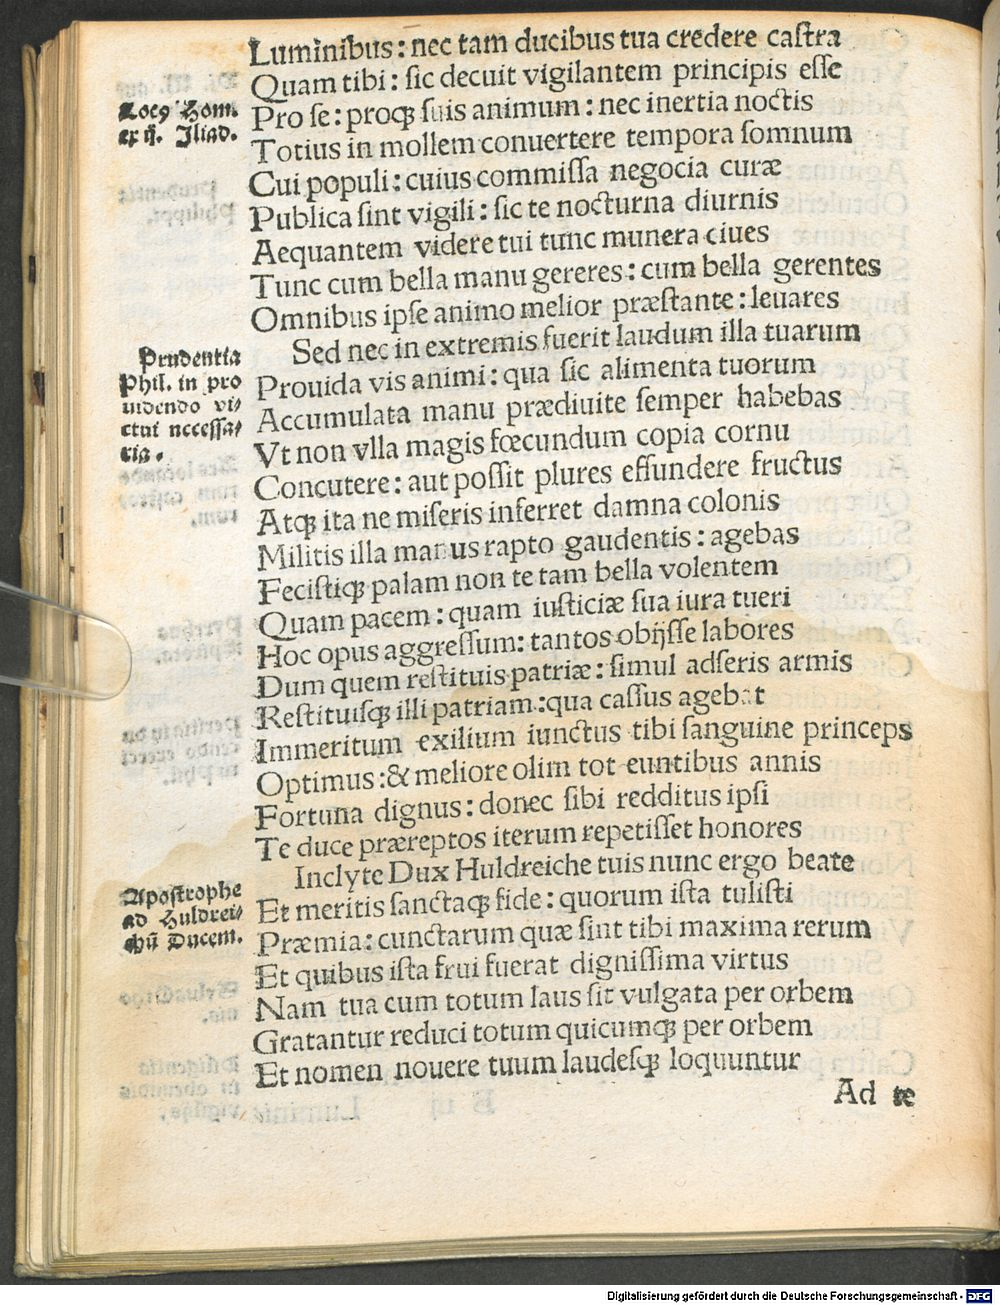 Luminibus: nec tam ducibus tua credere castra
Quam tibi: sic decuit vigilantem principis esse
Pro se: proqꝫ suis animum: nec inertia noctis
Totius in mollem conuertere tempora somnum
Cui populi: cuius commissa negocia curæ
Publica sint vigili: sic te nocturna diurnis
Aequantem videre tui tunc munera ciues
Tunc cum bella manu gereres: cum bella gerentes
Omnibus ipse animo melior præstante: leuares
Sed nec in extremis fuerit laudum illa tuarum
Prouida vis animi: qua sic alimenta tuorum
Accumulata manu prædiuite semper habebas
Vt non vlla magis fœcundum copia cornu
Concutere: aut possit plures effundere fructus
Atqꝫ ita ne miseris inferret damna colonis
Militis illa manus rapto gaudentis: agebas
Fecistiqꝫ palam non te tam bella volentem
Quam pacem: quam iusticiæ sua iura tueri
Hoc opus aggressum: tantos obijsse labores
Dum quem restituis patriæ: simul adseris armis
Restituisqꝫ illi patriam: qua cassus agebat
Immeritum exilium iunctus tibi sanguine princeps
Optimus: & meliore olim tot euntibus annis
Fortuna dignus: donec sibi redditus ipsi
Te duce præreptos iterum repetisset honores
Inclyte Dux Huldreiche tuis nunc ergo beate
Et meritis sanctaqꝫ fide: quorum ista tulisti
Præmia: cunctarum quæ sint tibi maxima rerum
Et quibus ista frui fuerat dignissima virtus
Nam tua cum totum laus sit vulgata per orbem
Gratantur reduci totum quicumqꝫ per orbem
Et nomen nouere tuum laudesqꝫ loquuntur
Ad te
Locꝰ Hom.
ex ij. Iliad.
Prudentia
Phil. in pro
uidendo vi⸗
ctui necessa⸗
ria.
Apostrophe
ad Huldrei⸗
chū Ducem.
Digitalisierung gefördert durch die Deutsche Forschungsgemeinschaft - DFG